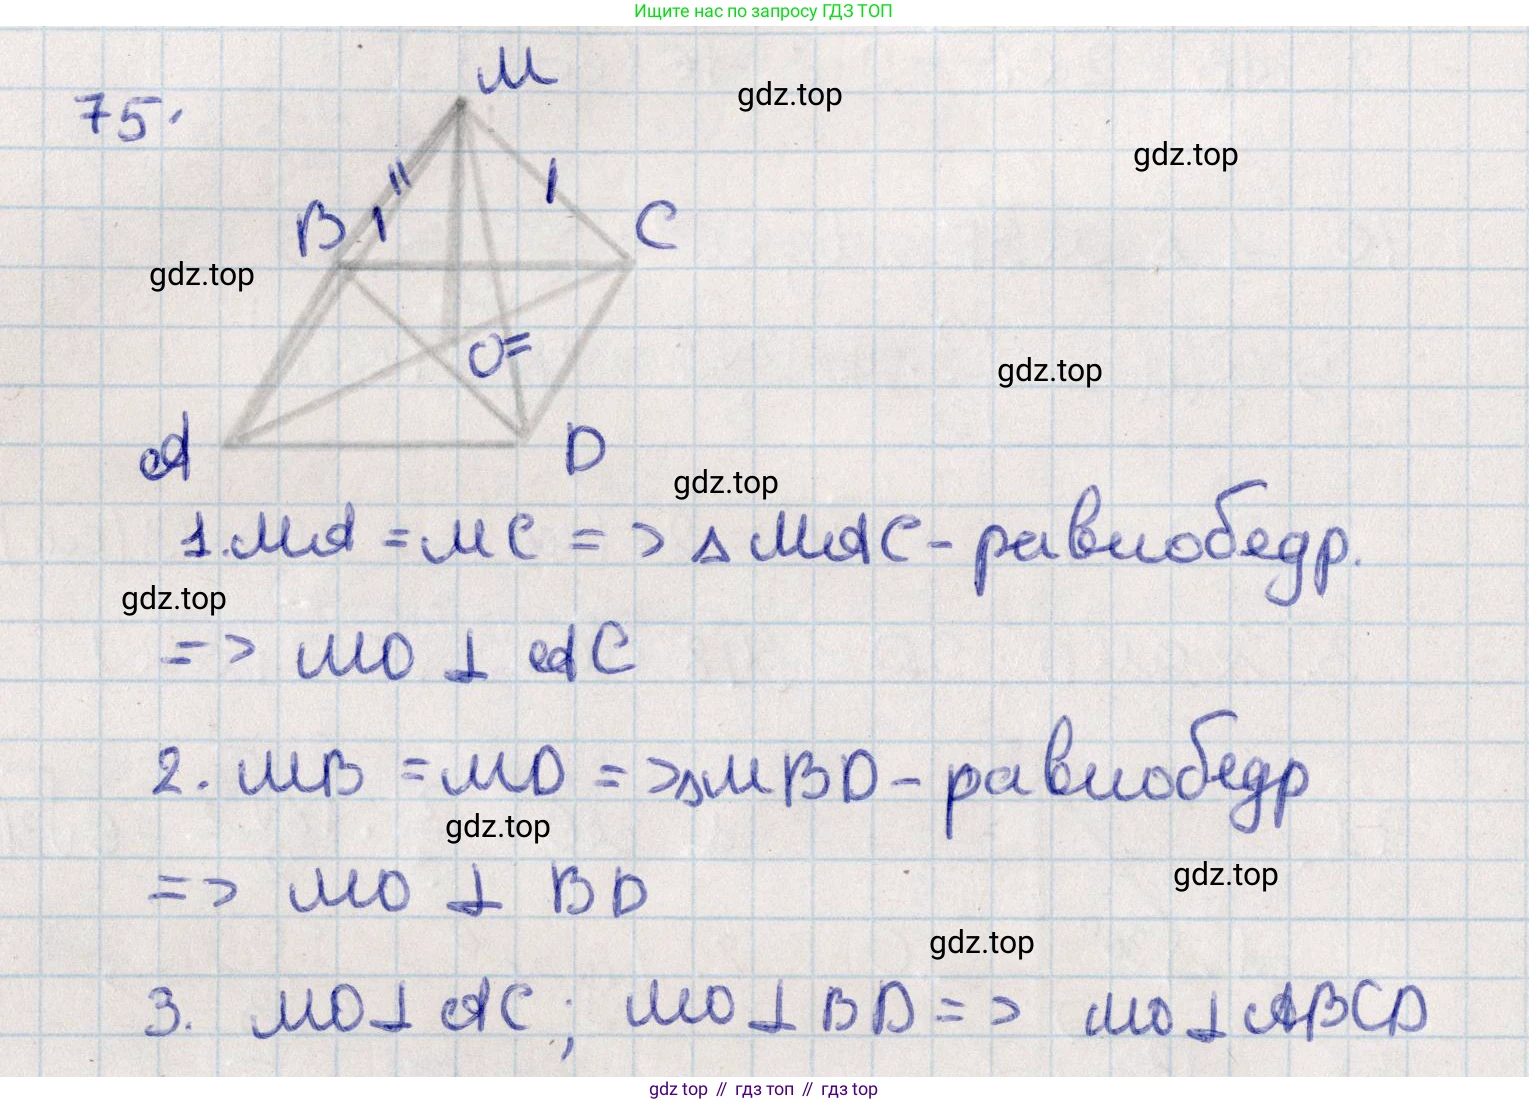 Ищите нас по запросу ГДЗ ТОП
M
75.
gdz.top
gdz.top
B
C
gdz.top
O
gdz.top
A
D
gdz.top
1. MA = MC => △ MAC - равнобедр.
gdz.top
=> MO ⊥ AC
2. MB = MD => △ MBD - равнобедр
gdz.top
=> MO ⊥ BD
gdz.top
gdz.top
3. MO ⊥ AC; MO ⊥ BD => MO ⊥ ABCD
gdz top // гдз топ // гдз top